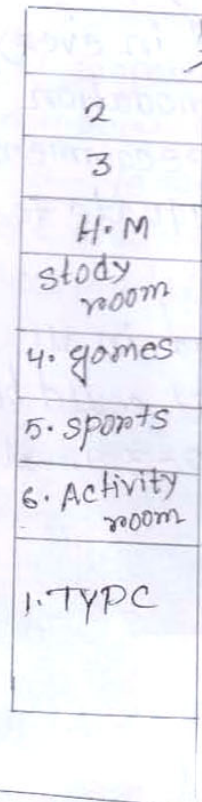 2
3
H.M
study
room
4. games
5. sports
6. Activity
room
1. TYPC